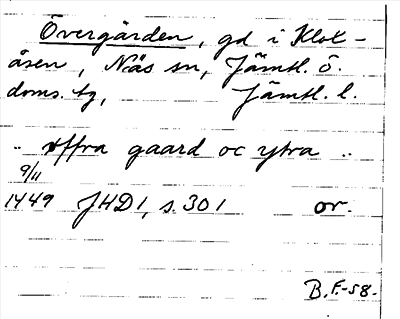 Övergården, gd i Klox-
åsen, Näs sn, Jämtl. ö.
doms. tg, Jämtl. l.
.. offra gaard oc ytra ..
9/11
1449 JHD 1, s. 301 or.
B.F.-58.